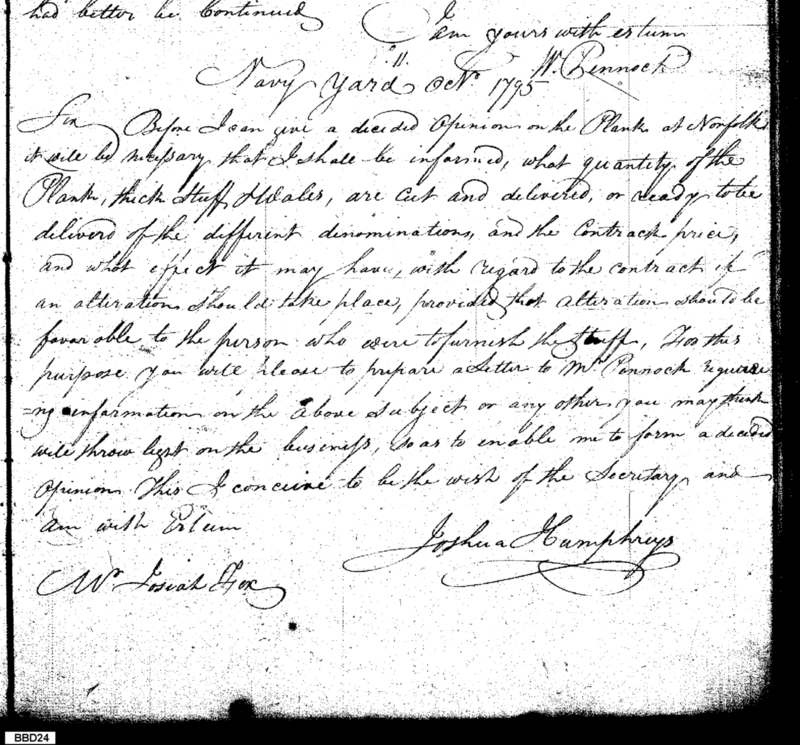 had better be Continued
I am yours with esteem
W. Pennock
Navy Yard Octr. 11. 1795
Sir Before I can give a decided Opinion on the Plank at Norfolk
it will be necessary that I shall be informed, what quantity of the
Plank, thick Stuff & Wales, are Cut and delivered, or ready to be
deliverd of the different dinominations, and the Contract price,
and what effect it may have, with regard to the contract if
an alteration should take place, provided that alteration should be
favorable to the person who were to furnish the Stuff, For this
purpose you will please to prepare a Letter to Mr Pennock requir
=ng information on the above Subject or any other you may think
will throw light on the business, so as to enable me to form a decided
Opinion This I conceive to be the wish of the Secretary and
am with Esteem
Joshua Humphreys
Mr Josiah Fox
BBD24